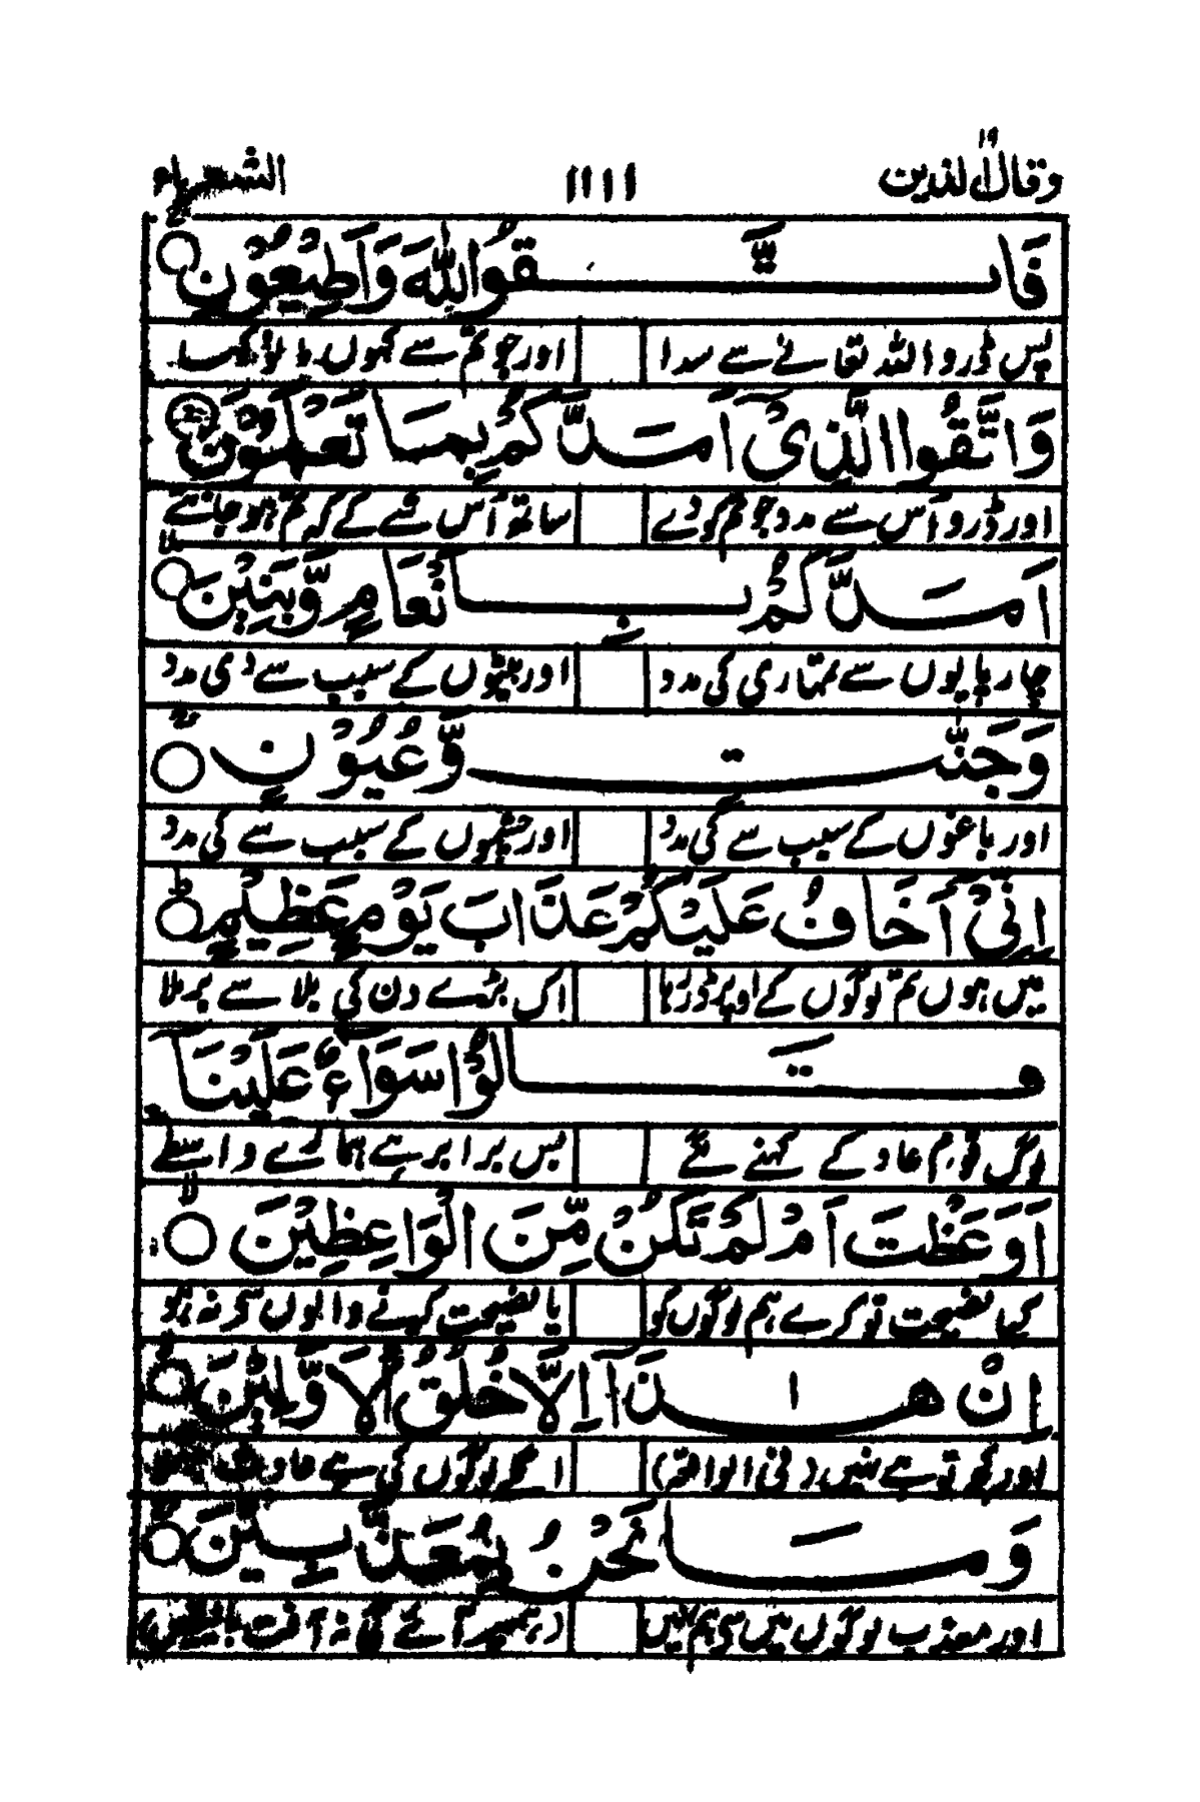 وقال الذين ۱۹ ۱۱۱۱ الشعراء
فَاتَّقُوا اللّٰهَ وَاَطِيْعُوْنِ
پس ڈرو اللہ تعالےٰ سے سدا اور جو تم سے کہوں لاؤ
وَاتَّقُوا الَّذِيْٓ اَمَدَّكُمْ بِمَا تَعْلَمُوْنَ
اور ڈرو اُس سے مدد جو تم کو دے ساتھ اُس شے کے کہ تم ہو جانتے
اَمَدَّكُمْ بِاَنْعَامٍ وَّبَنِيْنَ
چارپایوں سے تمہاری کی مدد اور بیٹوں کے سبب سے دی مدد
وَجَنّٰتٍ وَّعُيُوْنٍ
اور باغوں کے سبب سے کی مدد اور چشموں کے سبب سے کی مدد
اِنِّيْٓ اَخَافُ عَلَيْكُمْ عَذَابَ يَوْمٍ عَظِيْمٍ
میں ہوں تم لوگوں کے اوپر ڈر رہا اک بڑے دن کی بلا سے بر ملا
قَالُوْا سَوَآءٌ عَلَيْنَآ
لوگ قوم عاد کے کہنے لگے بس برابر ہے ہمارے واسطے
اَوَعَظْتَ اَمْ لَمْ تَكُنْ مِّنَ الْوَاعِظِيْنَ
کیا نصیحت تو کرے ہم لوگوں کو یا نصیحت کہنے والوں سے نہ ہو
اِنْ هٰذَآ اِلَّا خُلُقُ الْاَوَّلِيْنَ
اور کچھ تو ہے نہیں (فی الواقعہ) اگلے لوگوں کی ہے عادت
وَمَا نَحْنُ بِمُعَذَّبِيْنَ
اور معذب لوگوں میں سے ہم نہیں (ہمپر آئے گی نہ آفت بالیقیں)